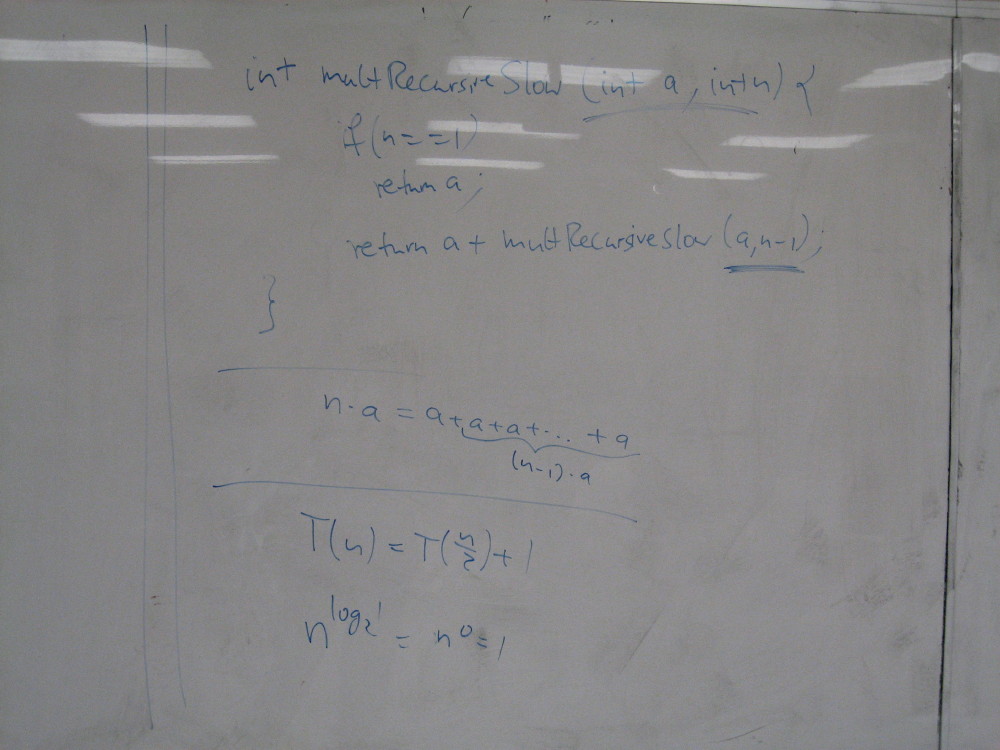 int multRecursiveSlow (int a, int n) {
if(n==1)
return a;
return a + multRecursiveSlow (a,n-1);
}
n·a = a+a+a+... +a
(n-1)·a
T(n) = T(n/2)+1
n^log₂1 = n^0=1